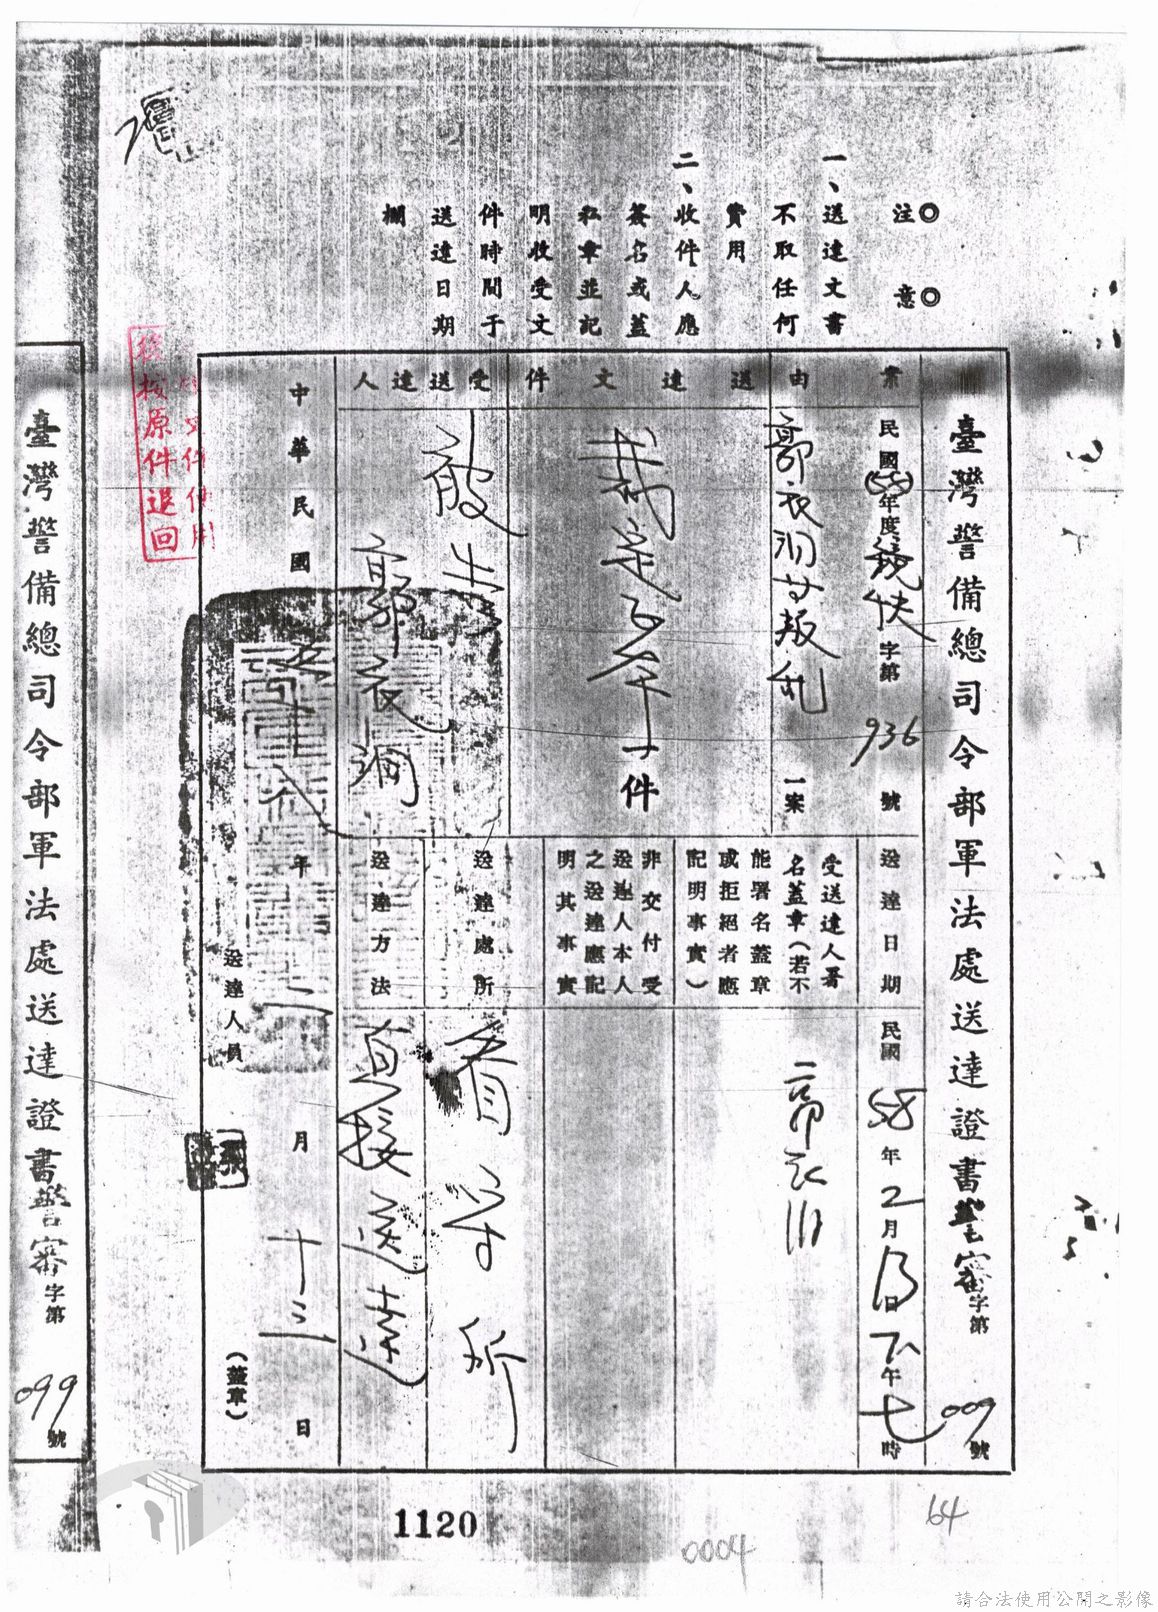 注意
一、送達文書
不取任何
費用
二、收件人應
簽名或蓋
私章並記
明收受文
件時間于
送達日期
欄
臺灣警備總司令部軍法處送達證書警審字第009號
案由
民國58年度競快字第936號
郭衣洞叛乱一案
送達文件
裁定正本一件
受送達人
被告
郭衣洞
送達日期
民國58年2月13日下午七時
受送達人署
名蓋章(若不
能署名蓋章
或拒絕者應
記明事實)
郭衣洞
非交付受
送達人本人
之送達應記
明其事實
送達處所
看守所
送達方法
直接送達
中華民國五十八年二月十三日
送達人員
(蓋章)
臺灣警備總司令部軍法處送達證書警審字第099號
按原件退回
1120
0004
64
請合法使用公開之影像